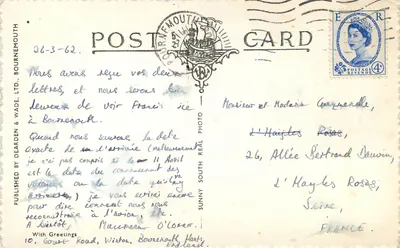 POST CARD
BOURNEMOUTH
E R
POSTAGE
4D
PUBLISHED BY DEARDEN & WADE, LTD., BOURNEMOUTH
SUNNY SOUTH REAL PHOTO
26-3-62.
Nous avons reçu vos deux
lettres et nous serons bien
de voir Francis ici
à Bournemouth.
Quand nous saurons la date
exacte de l'arrivée
je n'ai pas compris si le 11 Avril
est la date du commencement des
vacances ou la date
je vous écrirai encore
pour dire comment nous vous
à l'avion, etc.
A bientôt, Maureen O'Connor.
With Greetings
10, Court Road, Bournemouth, Hants,
ENGLAND.
Monsieur et Madame
L'Hayles Roses,
26, Allée Bertrand
L'Hayles Roses,
Seine,
FRANCE.